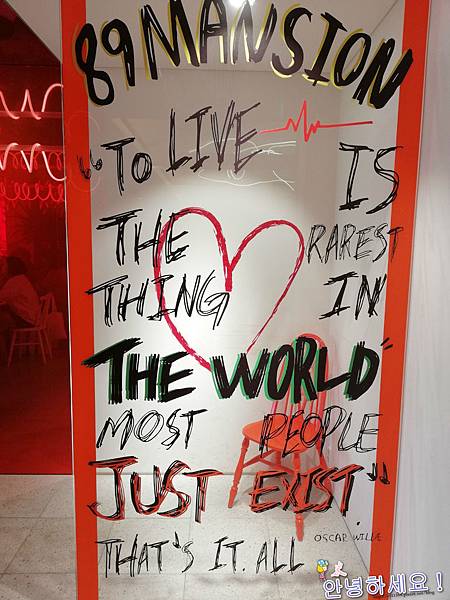 89 MANSION
"TO LIVE IS
THE RAREST
THING IN
THE WORLD"
MOST PEOPLE
JUST EXIST."
THAT'S IT. ALL
OSCAR WILDE
안녕하세요!